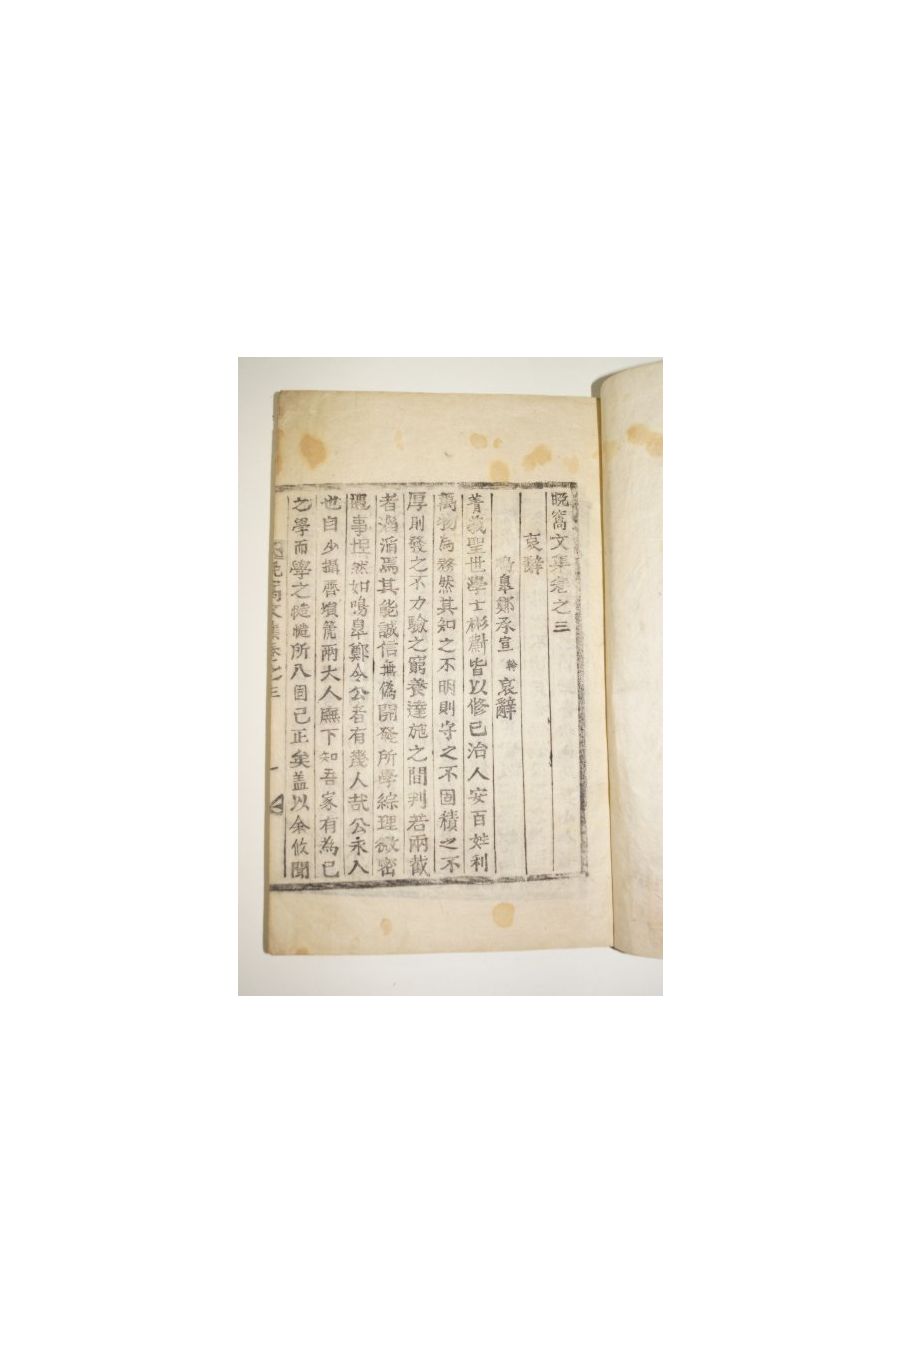 晩窩文集卷之三
哀辭
鳴臯鄭承宣 榦 哀辭
菁莪聖世學士彬蔚皆以修已治人安百姓利
萬物爲務然其知之不明則守之不固積之不
厚則發之不力驗之窮養達施之間判若兩截
者滔滔焉其能誠信無僞開發所學綜理微密
遇事坦然如鳴臯鄭令公者有幾人哉公永人
也自少攝齊塤篪兩大人廡下知吾家有為已
之學而學之慥慥所入固已正矣盖以余攸聞
晩窩文集卷之三 一